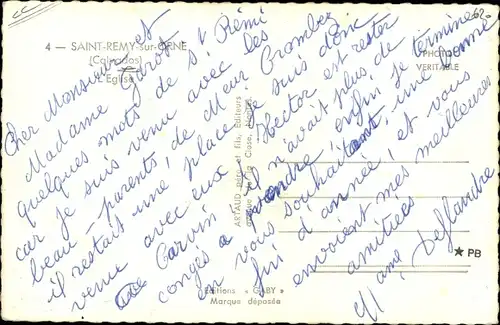 4 — SAINT-REMY-sur-ORNE
(Calvados)
L'Eglise
PHOTO
VERITABLE
Cher Monsieur et
Madame
quelques mots de St Rémi
car je suis venu avec les
beau-parents, de Meur Crombez
il restait une place je suis donc
venu avec eux Hector est rester
Carvin il n'avait plus de
congés a prendre, enfin je termine
en vous souhaitant, une bonne
fin d'année, et vous
envoient mes meilleures
amitiés
Mme Deflandre
ARTAUD père et Fils, Editeurs
Editions "GABY"
Marque déposée
★ PB